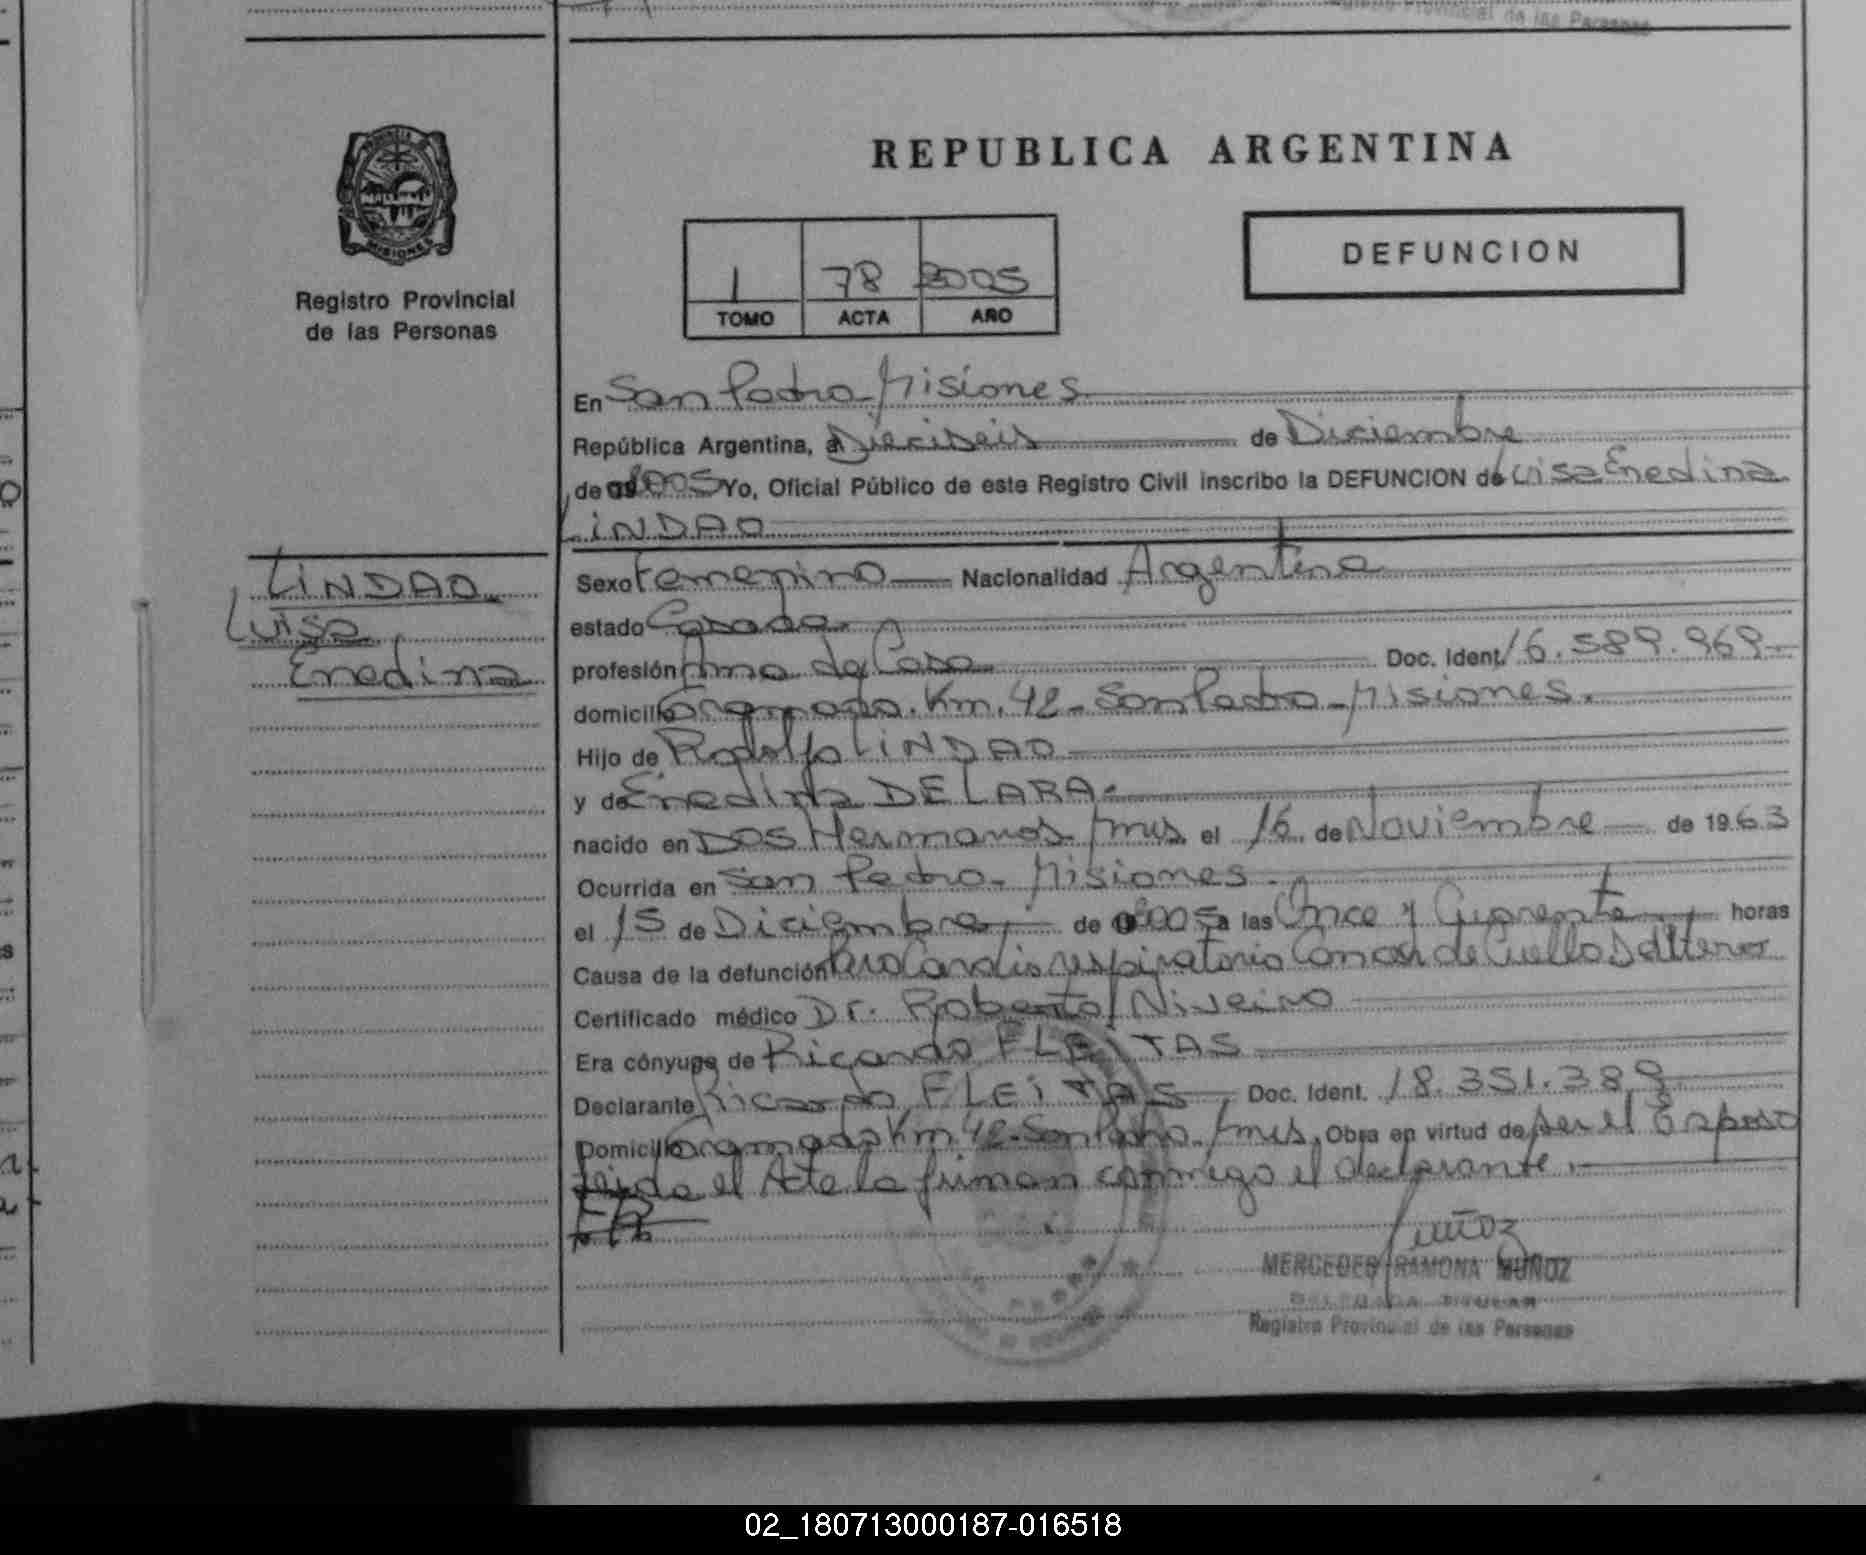 Registro Provincial de las Personas
PROVINCIA DE
MISIONES
Registro Provincial
de las Personas
REPUBLICA ARGENTINA
1 78 2005
TOMO ACTA AÑO
DEFUNCION
En San Pedro Misiones
República Argentina, a Dieciseis de Diciembre
de 2005 Yo, Oficial Público de este Registro Civil inscribo la DEFUNCION de Luisa Enedina
LINDAO
LINDAO
Luisa
Enedina
Sexo Femenino Nacionalidad Argentina
estado Casada
profesión Ama de Casa Doc. Ident. 16.589.969
domicilio Gramado. Km. 42 - San Pedro - Misiones.
Hijo de Rodolfo LINDAO
y de Enedina DE LARA.
nacido en DOS Hermanos Mnes. el 16 de Noviembre de 1963
Ocurrida en San Pedro - Misiones.
el 15 de Diciembre de 2005 a las Once y Cuarenta horas
Causa de la defunción Paro Cardio respiratorio Cancer de Cuello
Certificado médico Dr. Roberto Niveiro
Era cónyuge de Ricardo FLEITAS
Declarante Ricardo FLEITAS Doc. Ident. 18.351.389
Domicilio Gramado Km. 42 - San Pedro - Mnes. Obra en virtud de ser el Esposo
leida el Acta la firman conmigo el declarante.
Muñoz
MERCEDES RAMONA MUÑOZ
DELEGADA TITULAR
Registro Provincial de las Personas
02_180713000187-016518